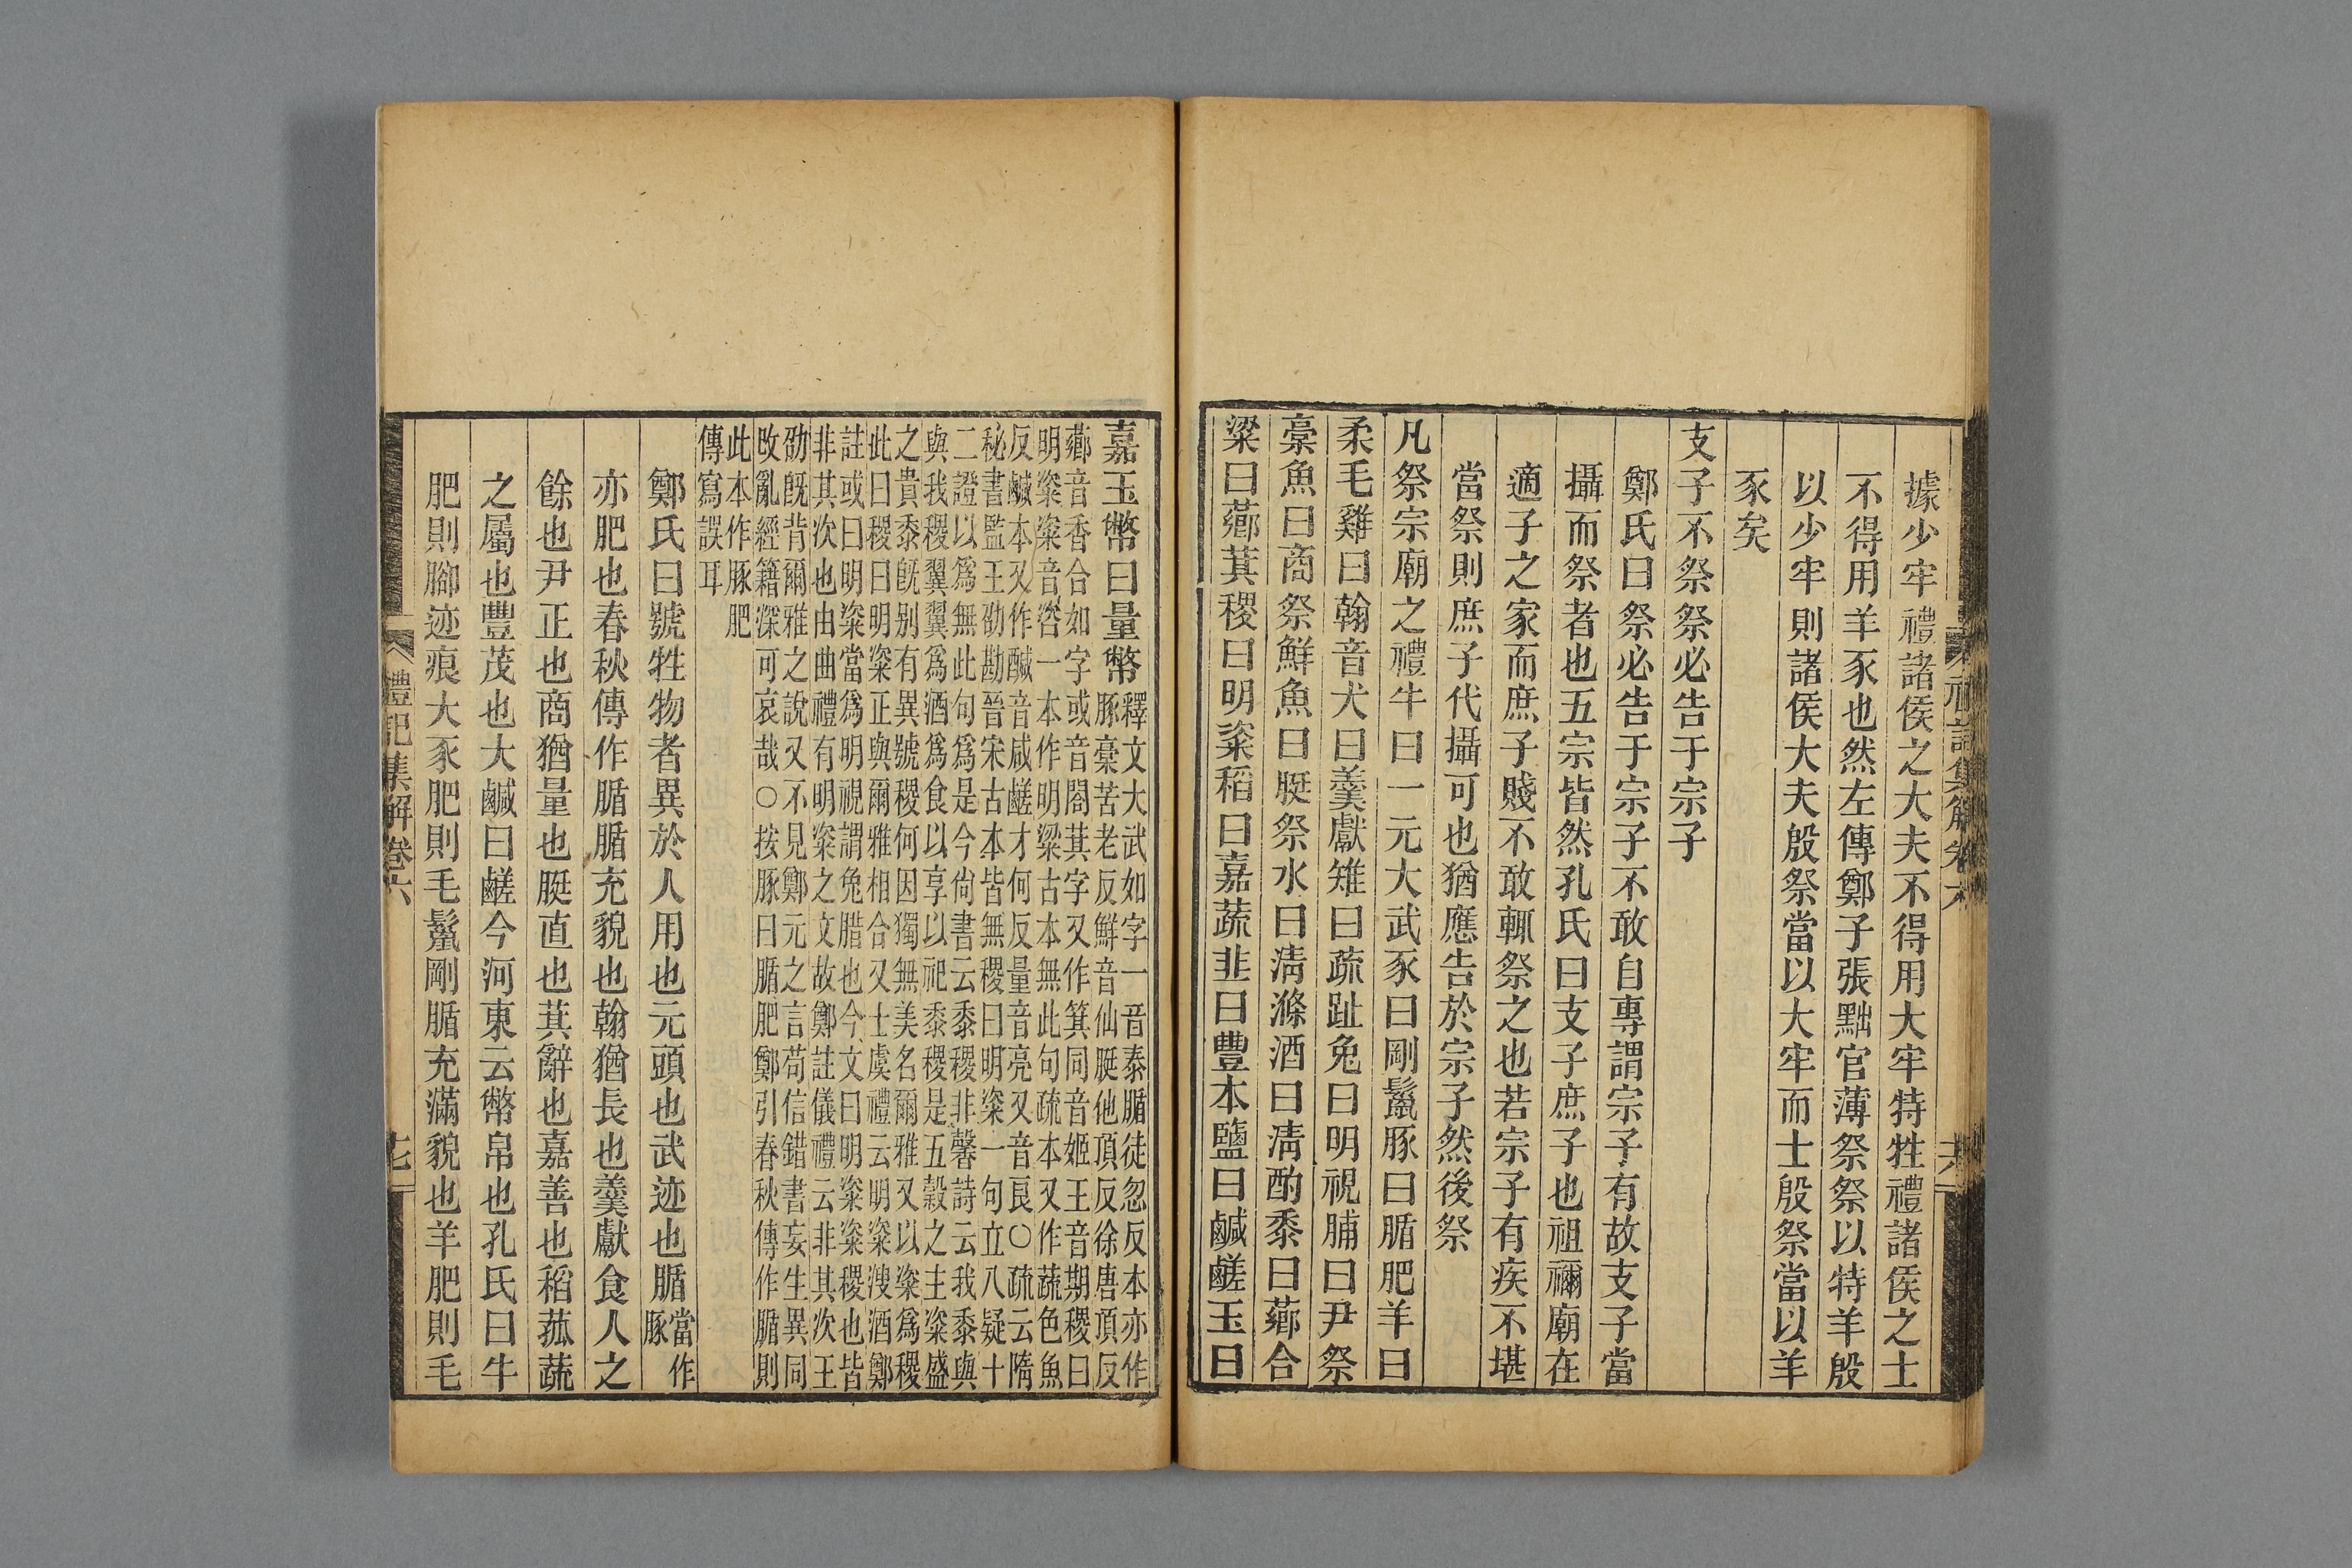 據少牢禮諸侯之大夫不得用大牢特牲禮諸侯之士
不得用羊豕也然左傳鄭子張黜官薄祭祭以特羊殷
以少牢則諸侯大夫殷祭當以大牢而士殷祭當以羊
豕矣
支子不祭祭必告于宗子
鄭氏曰祭必告于宗子不敢自專謂宗子有故支子當
攝而祭者也五宗皆然孔氏曰支子庶子也祖禰廟在
適子之家而庶子賤不敢輒祭之也若宗子有疾不堪
當祭則庶子代攝可也猶應告於宗子然後祭
凡祭宗廟之禮牛曰一元大武豕曰剛鬣豚曰腯肥羊曰
柔毛雞曰翰音犬曰羹獻雉曰疏趾兔曰明視脯曰尹祭
槀魚曰商祭鮮魚曰脡祭水曰淸滌酒曰淸酌黍曰薌合
粱曰薌萁稷曰明粢稻曰嘉蔬韭曰豐本鹽曰鹹鹺玉曰
嘉玉幣曰量幣
釋文大武如字一音泰腯徒忽反本亦作
豚槀苦老反鮮音仙脡他頂反徐唐頂反
薌音香合如字或音閤萁字又作箕同音姬王音期稷曰
明粢粢音咨一本作明粱古本無此句疏本又作蔬色魚
反鹹本又作醎音咸鹺才何反量音亮又音良○疏云隋
秘書監王劭勘晉宋古本皆無稷曰明粢一句立八疑十
二證以爲無此句爲是今尙書云黍稷非馨詩云我黍與
與我稷翼翼爲酒爲食以享以祀黍稷是五穀之主粢盛
之貴黍旣別有異號稷何因獨無美名爾雅又以粢爲稷
此曰稷曰明粢正與爾雅相合又士虞禮云明粢溲酒鄭
註或曰明粢當爲明視謂兔腊也今文曰明粢粢稷也皆
非其次也由曲禮有明粢之文故鄭註儀禮云非其次王
劭旣背爾雅之說又不見鄭元之言苟信錯書妄生異同
改亂經籍深可哀哉○按豚曰腯肥鄭引春秋傳作腯則
此本作豚肥
傳寫誤耳
鄭氏曰號牲物者異於人用也元頭也武迹也腯當作豚
亦肥也春秋傳作腯腯充貌也翰猶長也羹獻食人之
餘也尹正也商猶量也脡直也萁辭也嘉善也稻菰蔬
之屬也豐茂也大鹹曰鹺今河東云幣帛也孔氏曰牛
肥則腳迹痕大豕肥則毛鬣剛腯充滿貌也羊肥則毛
禮記集解卷六